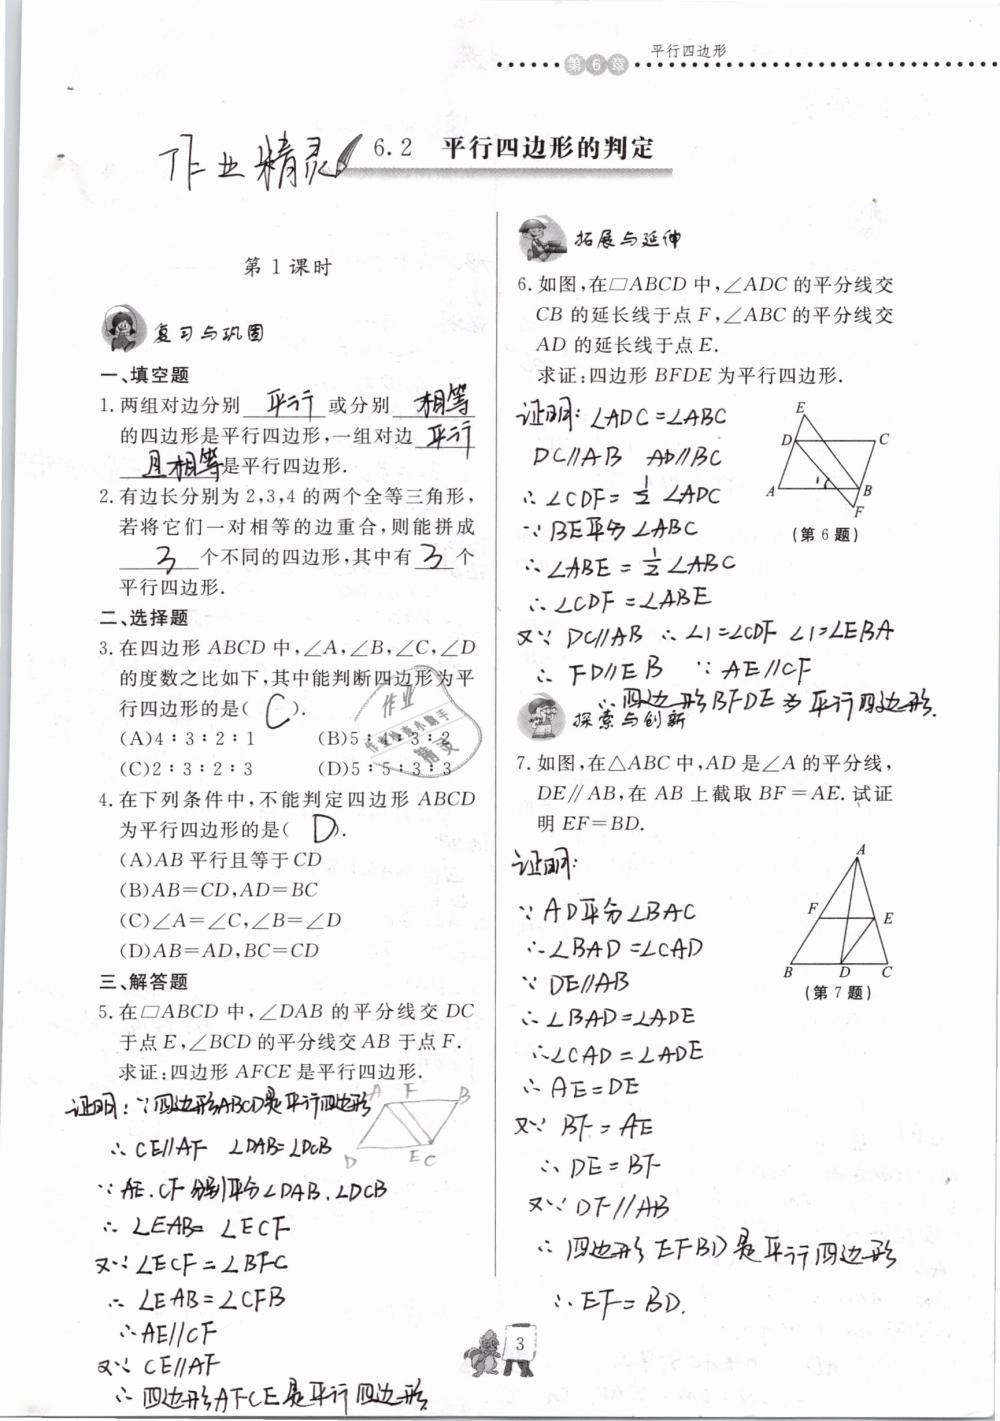 第6章
平行四边形
作业精灵
6.2 平行四边形的判定
第1课时
复习与巩固
一、填空题
1.两组对边分别 平行 或分别 相等
的四边形是平行四边形,一组对边 平行
且相等 是平行四边形.
2.有边长分别为2,3,4的两个全等三角形,
若将它们一对相等的边重合,则能拼成
3 个不同的四边形,其中有 3 个
平行四边形.
二、选择题
3.在四边形ABCD中,∠A,∠B,∠C,∠D
的度数之比如下,其中能判断四边形为平
行四边形的是( C ).
(A)4∶3∶2∶1 (B)5∶4∶3∶2
(C)2∶3∶2∶3 (D)5∶5∶3∶3
4.在下列条件中,不能判定四边形ABCD
为平行四边形的是( D ).
(A)AB平行且等于CD
(B)AB=CD,AD=BC
(C)∠A=∠C,∠B=∠D
(D)AB=AD,BC=CD
三、解答题
5.在□ABCD中,∠DAB的平分线交DC
于点E,∠BCD的平分线交AB于点F.
求证:四边形AFCE是平行四边形.
证明:∵四边形ABCD是平行四边形
A F B
D E C
∴CE//AF ∠DAB=∠DCB
∵AE.CF分别平分∠DAB.∠DCB
∴∠EAB=∠ECF
又∵∠ECF=∠BFC
∴∠EAB=∠CFB
∴AE//CF
又∵CE//AF
∴四边形AFCE是平行四边形
作业
作业检查小助手
精灵
拓展与延伸
6.如图,在□ABCD中,∠ADC的平分线交
CB的延长线于点F,∠ABC的平分线交
AD的延长线于点E.
求证:四边形BFDE为平行四边形.
证明:∠ADC=∠ABC
DC//AB AD//BC
∴∠CDF=½∠ADC
∵BE平分∠ABC
∴∠ABE=½∠ABC
∴∠CDF=∠ABE
又∵DC//AB ∴∠1=∠CDF ∠1=∠EBA
∴FD//EB ∵AE//CF
∴四边形BFDE为平行四边形.
E
D C
A 1 B
F
(第6题)
探索与创新
7.如图,在△ABC中,AD是∠A的平分线,
DE∥AB,在AB上截取BF=AE.试证
明EF=BD.
证明:
∵AD平分∠BAC
∴∠BAD=∠CAD
∵DE//AB
∴∠BAD=∠ADE
∴∠CAD=∠ADE
∴AE=DE
又∵BF=AE
∴DE=BF
又∵DF//AB
∴四边形EFBD是平行四边形
∴EF=BD.
A
F E
B D C
(第7题)
3